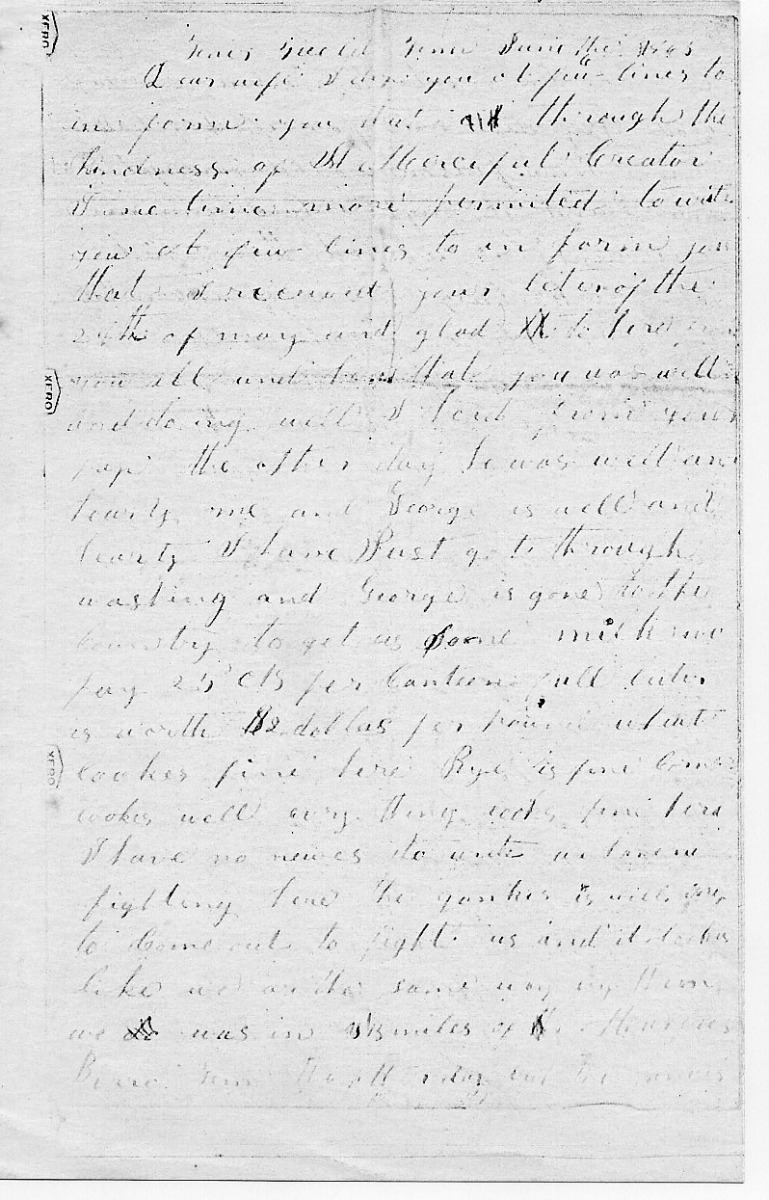 Tenn June the 1863
Dear wife I drop you a few lines to
in form you that through the
kindness of Merciful Creator
I me time more permited to write
you at few lines to in form you
that I received your leter of the
24th of may and glad to herd from
you all and that you was well
and doing well I herd from your
pap the other day he was well and
hearty me and George is well and
hearty I have Just got through
washing and George is gone to the
Country to get us some milk we
pay 25 cts per Canteen full buter
is worth $2 dollas per pound wheat
lookes fine here Rye is fine Corn
lookes well evry thing looks fine here
I have no newes to write
fighting here the yankes is
to Come out to fight us and it lookes
like we are the same way by them
we was in 13 miles of
Burro Tenn day
XERO
XERO
XERO